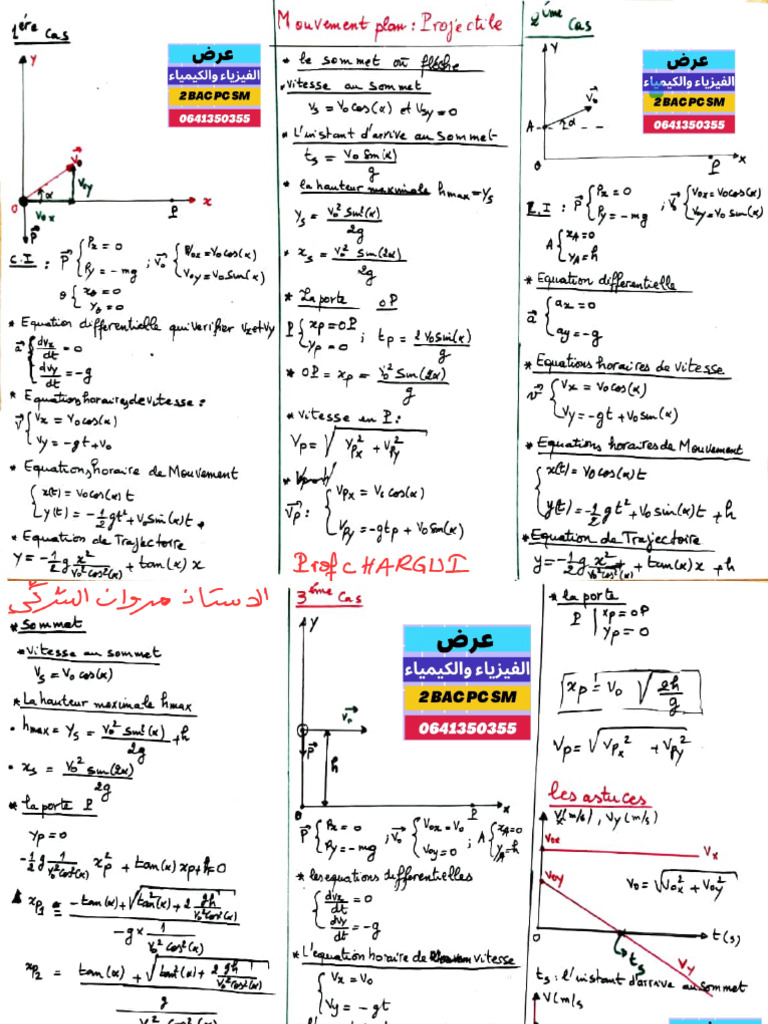 1ére Cas
y
عرض
الفيزياء والكيمياء
2 BAC PC SM
0641350355
V₀
V₀y
α
O
V₀x
P
x
P
C.I : P { Px = 0 ; V₀ { V₀x = V₀cos(α)
Py = -mg V₀y = V₀Sin(α)
θ { xθ = 0
yθ = 0
* Equation differentielle qui verifier Vx et Vy
a { dVx/dt = 0
dVy/dt = -g
* Equations horaires de vitesse :
V { Vx = V₀cos(α)
Vy = -gt + V₀
* Equations horaire de Mouvement
{ x(t) = V₀cos(α) t
y(t) = -1/2 gt² + V₀Sin(α)t
* Equation de Trajectoire
y = -1/2 g x²/(V₀²cos²(α)) + tan(α) x
Mouvement plan : Projectile
* le sommet ou fléche
. Vitesse au sommet
Vs = V₀cos(α) et Vsy = 0
* L'instant d'arrive au sommet
ts = V₀Sin(α)/g
* la hauteur maximale hmax = Ys
Ys = V₀² Sin²(α)/2g
* xs = V₀² Sin(2α)/2g
* La porte OP
P { xp = OP ; tp = 2V₀Sin(α)/g
yp = 0
* OP = xp = V₀² Sin(2α)/g
* Vitesse en P :
Vp = √(Vpx² + Vpy²)
Vp : { Vpx = V₀cos(α)
Vpy = -gtp + V₀Sin(α)
Prof CHARGUI
2éme Cas
y
عرض
الفيزياء والكيمياء
2 BAC PC SM
0641350355
V₀
A
α
O
P
x
C.I : P { Px = 0 ; V₀ { V₀x = V₀cos(α)
Py = -mg V₀y = V₀ Sin(α)
A { xA = 0
yA = h
* Equation differentielle
a { ax = 0
ay = -g
* Equations horaires de vitesse
V { Vx = V₀cos(α)
Vy = -gt + V₀Sin(α)
* Equations horaires de Mouvement
{ x(t) = V₀cos(α)t
y(t) = -1/2 gt² + V₀Sin(α)t + h
* Equation de Trajectoire
y = -1/2 g x²/(V₀²cos²(α)) + tan(α)x + h
الاستاذ مروان الشرڭي
* Sommet
* Vitesse au sommet
Vs = V₀ cos(α)
* La hauteur maximale hmax
. hmax = Ys = V₀² Sin²(α)/2g + h
. xs = V₀² Sin(2α)/2g
* la porte P
yp = 0
-1/2 g 1/(V₀²cos²(α)) xp² + tan(α) xp + h = 0
xp1 = (-tan(α) + √(tan²(α) + 2 gh/(V₀²cos²(α))))/(-g × 1/(V₀²cos²(α)))
xp2 = (tan(α) + √(tan²(α) + 2gh/(V₀²cos²(α))))/(g/(V₀²cos²(α)))
3éme Cas
y
عرض
الفيزياء والكيمياء
2 BAC PC SM
0641350355
V₀
P
h
O
P
x
P { Px = 0 ; V₀ { V₀x = V₀ ; A { xA = 0
Py = -mg V₀y = 0 yA = h
* les equations differentielles
{ dVx/dt = 0
dVy/dt = -g
* L'equation horaire de vitesse
{ Vx = V₀
Vy = -gt
* la porte
P { xp = OP
yp = 0
xp = V₀ √(2h/g)
Vp = √(Vpx² + Vpy²)
les astuces
Vx(m/s), Vy(m/s)
V₀x
Vx
V₀y
V₀ = √(V₀x² + V₀y²)
O
t(s)
ts
Vy
ts : l'instant d'arrive au sommet
V(m/s